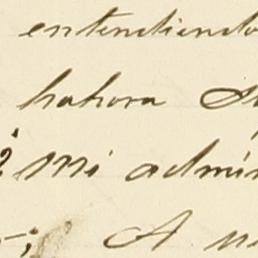 entendiendo
hahora
? mi admi
-; A